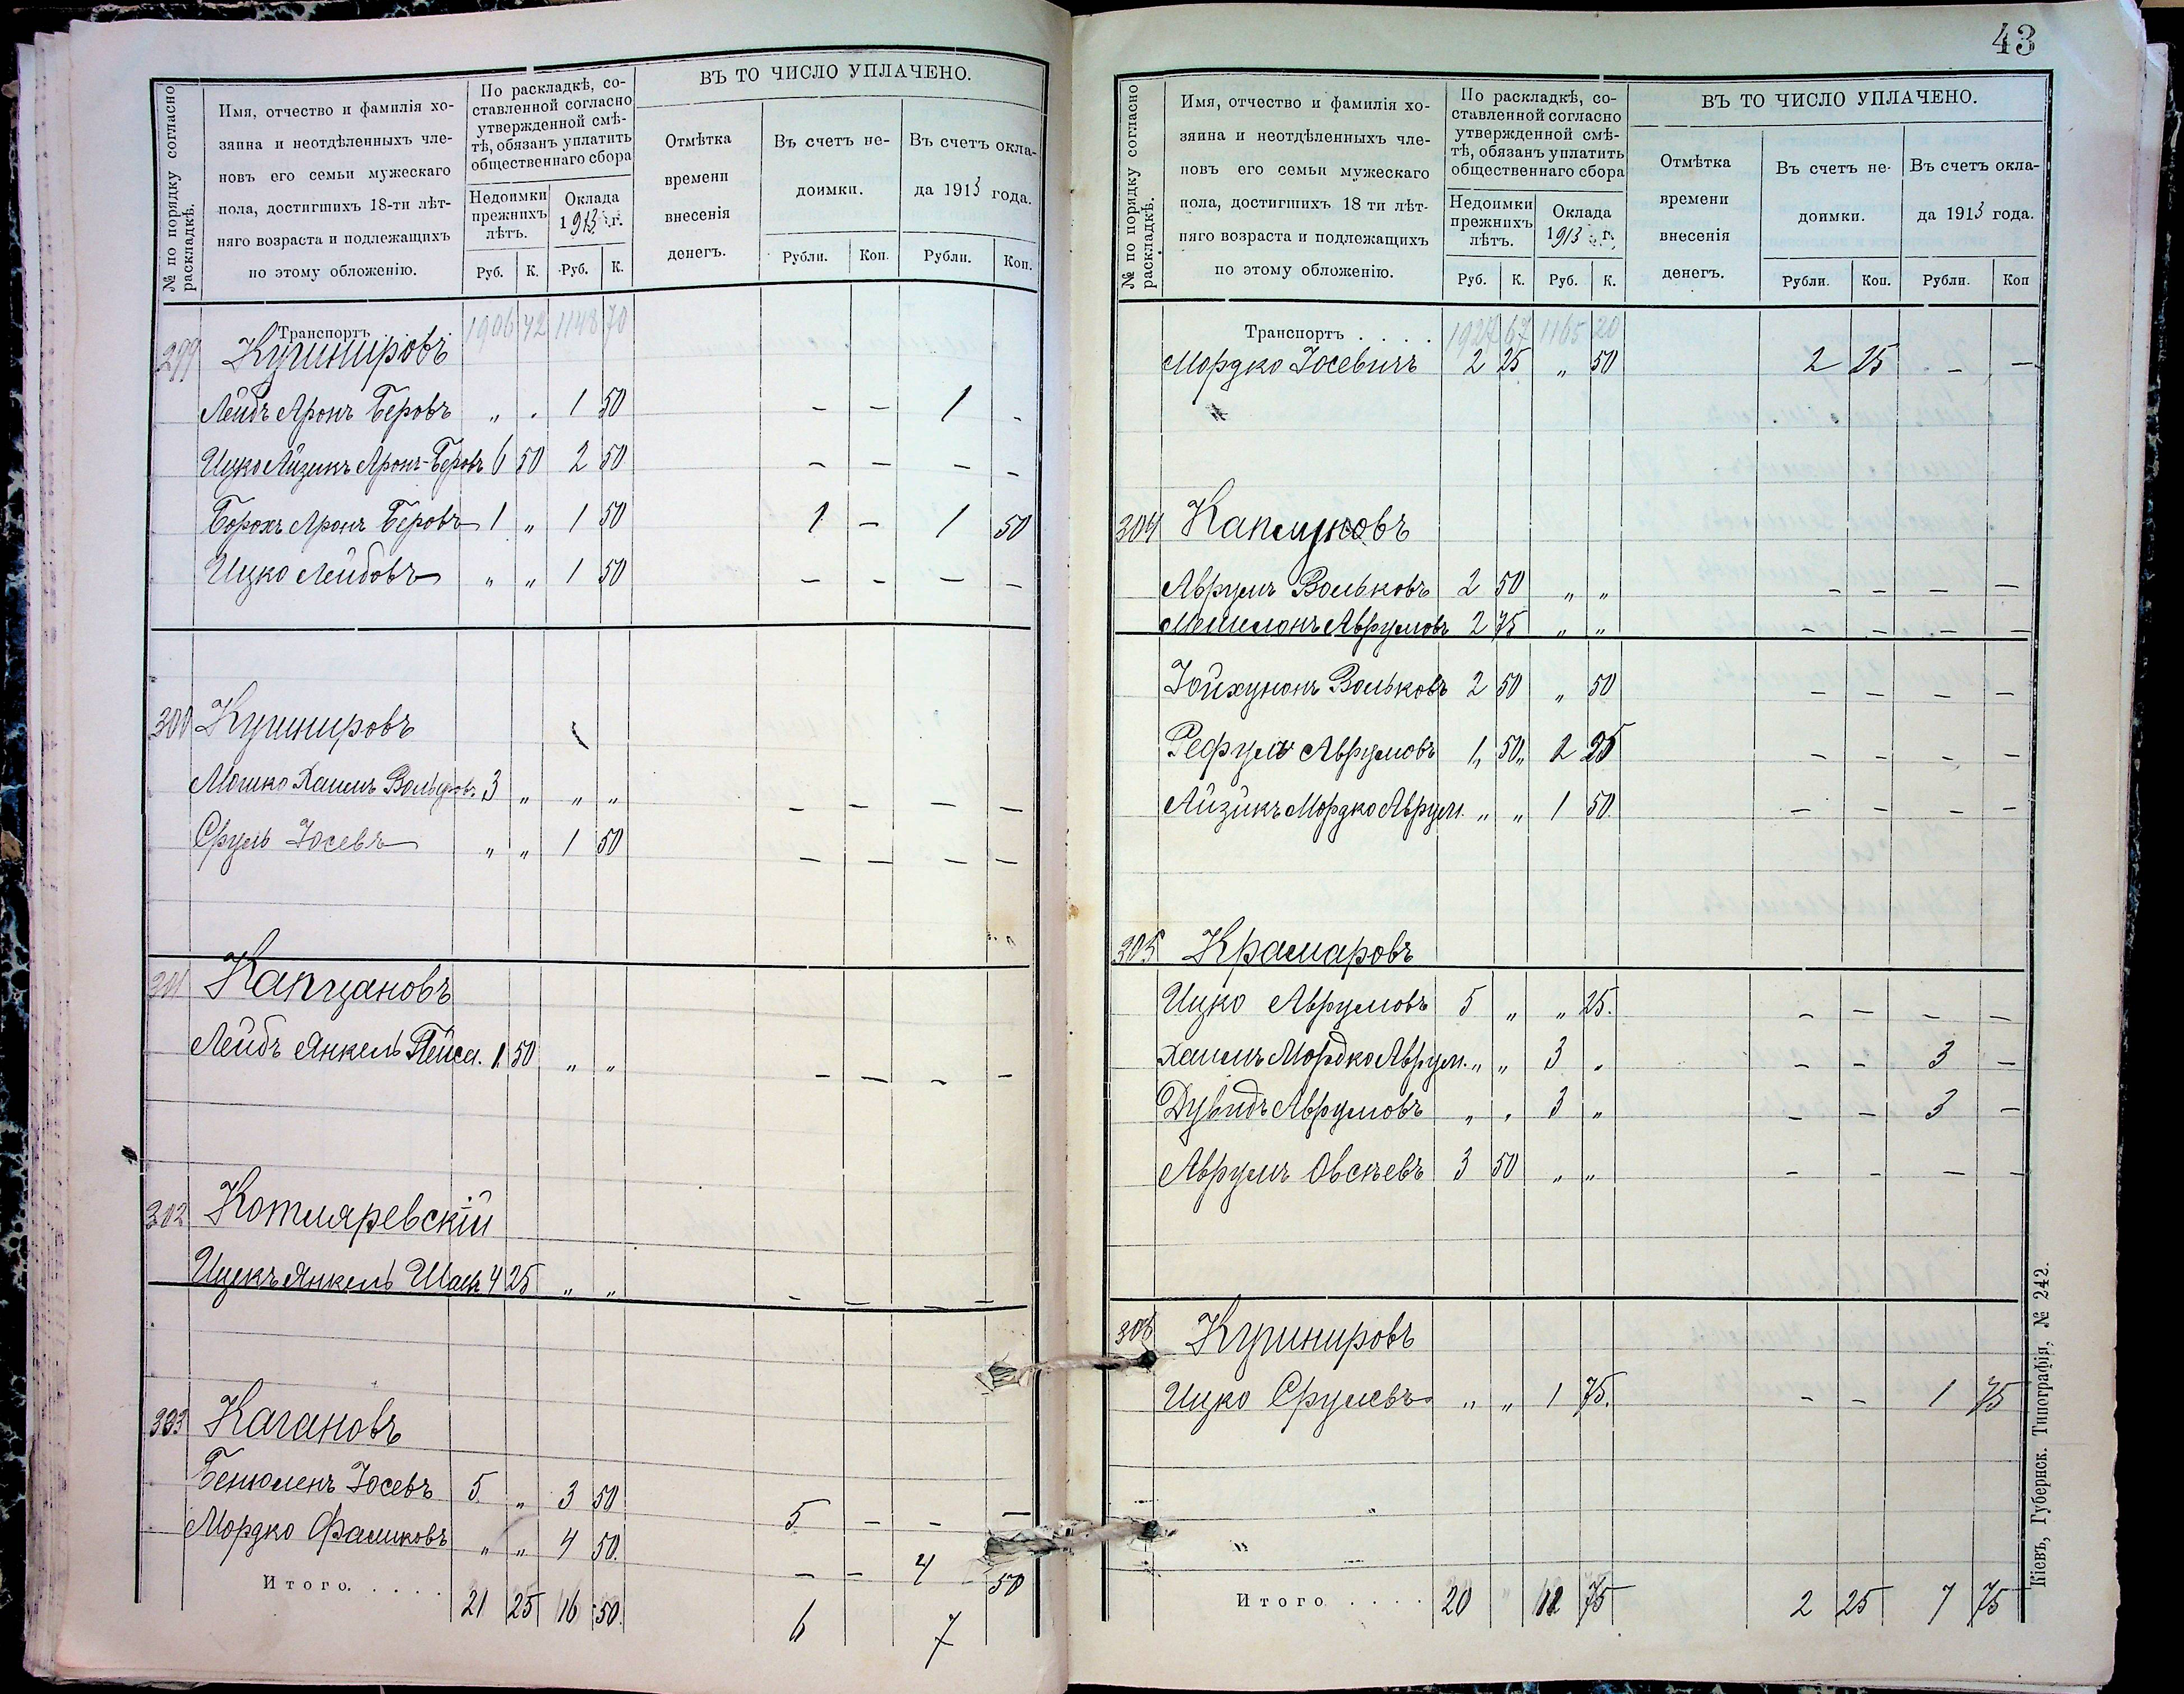 № по порядку согласно раскладкѣ.
Имя, отчество и фамилія хо-
зяина и неотдѣленныхъ чле-
новъ его семьи мужескаго
пола, достигшихъ 18-ти лѣт-
няго возраста и подлежащихъ
по этому обложенію.
По раскладкѣ, со-
ставленной согласно
утвержденной смѣ-
тѣ, обязанъ уплатить
общественнаго сбора
Недоимки
прежнихъ
лѣтъ.
Оклада
1913 г.
Руб. К. Руб. К.
ВЪ ТО ЧИСЛО УПЛАЧЕНО.
Отмѣтка
времени
внесенія
денегъ.
Въ счетъ не-
доимки.
Въ счетъ окла-
да 1913 года.
Рубли. Коп. Рубли. Коп.
Транспортъ 1906 42 1148 70
299 Кушнировъ
Лейбъ Аронъ Беровъ „ . 1 50 – – 1 -
Ицко Айзикъ Аронъ-Беровъ 6 50 2 50 – – – –
Борохъ Аронъ Беровъ 1 „ 1 50 1 – 1 50
Ицко Лейбовъ „ „ 1 50 – – – –
300 Кушнировъ
Мошко Хаимъ Вольфов. 3 „ „ „ – – – –
Сруль Іосевъ „ „ 1 50 – – – –
301 Капцановъ
Лейбъ Янкель Пейса. 1 50 „ „ – – – –
302 Котляревскій
Ицекъ Янкель 4 25 „ „ – – – –
303 Кагановъ
Бенюменъ Іосевъ 5 „ 3 50 5 – – –
Мордко Фаликовъ „ „ 4 50. – – 4 50
Итого. . . . . 21 25 16 50. 6 7
43
№ по порядку согласно раскладкѣ.
Имя, отчество и фамилія хо-
зяина и неотдѣленныхъ чле-
новъ его семьи мужескаго
пола, достигшихъ 18 ти лѣт-
няго возраста и подлежащихъ
по этому обложенію.
По раскладкѣ, со-
ставленной согласно
утвержденной смѣ-
тѣ, обязанъ уплатить
общественнаго сбора
Недоимки
прежнихъ
лѣтъ.
Оклада
1913 г.
Руб. К. Руб. К.
ВЪ ТО ЧИСЛО УПЛАЧЕНО.
Отмѣтка
времени
внесенія
денегъ.
Въ счетъ не-
доимки.
Въ счетъ окла-
да 1913 года.
Рубли. Коп. Рубли. Коп
Транспортъ . . . . 1927 67 1165 20
Мордко Іосевичъ 2 25 „ 50 2 25 – –
304 Каплуновъ
Аврумъ Вольковъ 2 50 „ „ – – – –
Мешелонъ Аврумовъ 2 75 „ „ – – – –
Іойхунонъ Вольковъ 2 50 „ 50 – – – –
Рефулъ Аврумовъ 1 50 2 25 – – – –
Айзикъ Мордко Аврум. „ „ 1 50. – – – –
305 Крамаровъ
Ицко Аврумовъ 5 „ „ 25. – – – –
Хаимъ Мордко Аврум. „ „ 3 „ – – 3 –
Дувидъ Аврумовъ „ „ 3 „ – – 3 –
Аврумъ Овсѣевъ 3 50 „ „ – – – –
306 Кушнировъ
Ицко Срулевъ „ „ 1 75. – – 1 75
Итого . . . . 20 „ 12 75 2 25 7 75
Кіевъ, Губернск. Типографія, № 242.